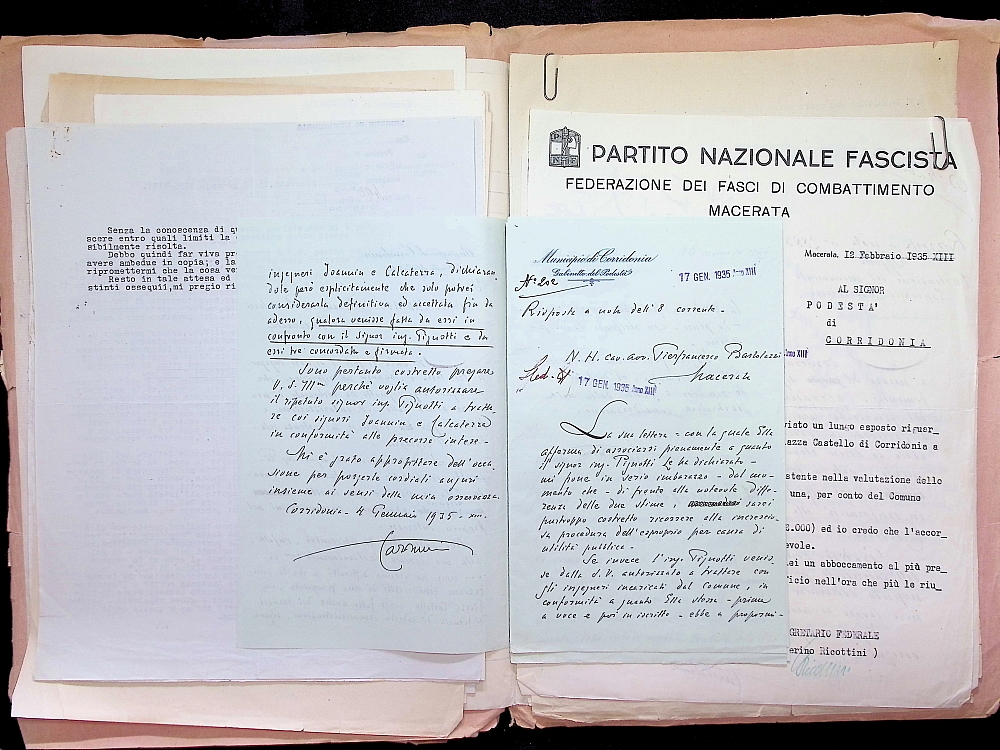 Senza la conoscenza di
scere entro quali limiti la
sibilmente risolta.
Debbo quindi far viva
avere ambedue in copia; e la
ripromettermi che la cosa
Resto in tale attesa ed
stinti ossequii, mi pregio
ingegneri Joannin e Calcaterra, dichiaran
dole però esplicitamente che solo potrei
considerarla definitiva ed accettata fin da
adesso, qualora venisse fatta da essi in
confronto con il signor ing. Pignotti e da
essi tre concordata e firmata.
Sono pertanto costretto pregare
V. S. Ill^ma perchè voglia autorizzare
il ripetuto signor ing. Pignotti a tratta
re coi signori Joannin e Calcaterra
in conformità alle precorse intese.
Mi è grato approfittare dell'occa
sione per porgerle cordiali auguri
insieme ai sensi della mia osservanza.
Corridonia - 4 Gennaio 1935 - XIII.
PARTITO NAZIONALE FASCISTA
FEDERAZIONE DEI FASCI DI COMBATTIMENTO
MACERATA
Macerata, 12 Febbraio 1935 XIII
AL SIGNOR
PODESTA'
di
CORRIDONIA
viato un lungo esposto riguar_
iazze Castello di Corridonia a
stente nella valutazione dello
una, per conto del Comune
.000) ed io credo che l'accor_
evole.
lei un abboccamento al più pre_
ficio nell'ora che più le riu_
GRETARIO FEDERALE
erino Ricottini )
Municipio di Corridonia
Gabinetto del Podestà
N° 202
17 GEN. 1935 Anno XIII
Risposta a nota dell'8 corrente.
N. H. cav. avv. Pierfrancesco Bartolazzi
Macerata
17 GEN. 1935 Anno XIII
La sua lettera - con la quale Ella
afferma di associarsi pienamente a quanto
il signor ing. Pignotti Le ha dichiarato -
mi pone in serio imbarazzo - dal mo-
mento che - di fronte alla notevole diffe-
renza delle due stime, sarei
purtroppo costretto ricorrere alla increscio-
sa procedura dell'esproprio per causa di
utilità pubblica.
Se invece l'ing. Pignotti venis
se dalla S.V. autorizzato a trattare con
gli ingegneri incaricati dal Comune, in
conformità a quanto Ella stessa - prima
a voce e poi in iscritto - ebbe a propormi -